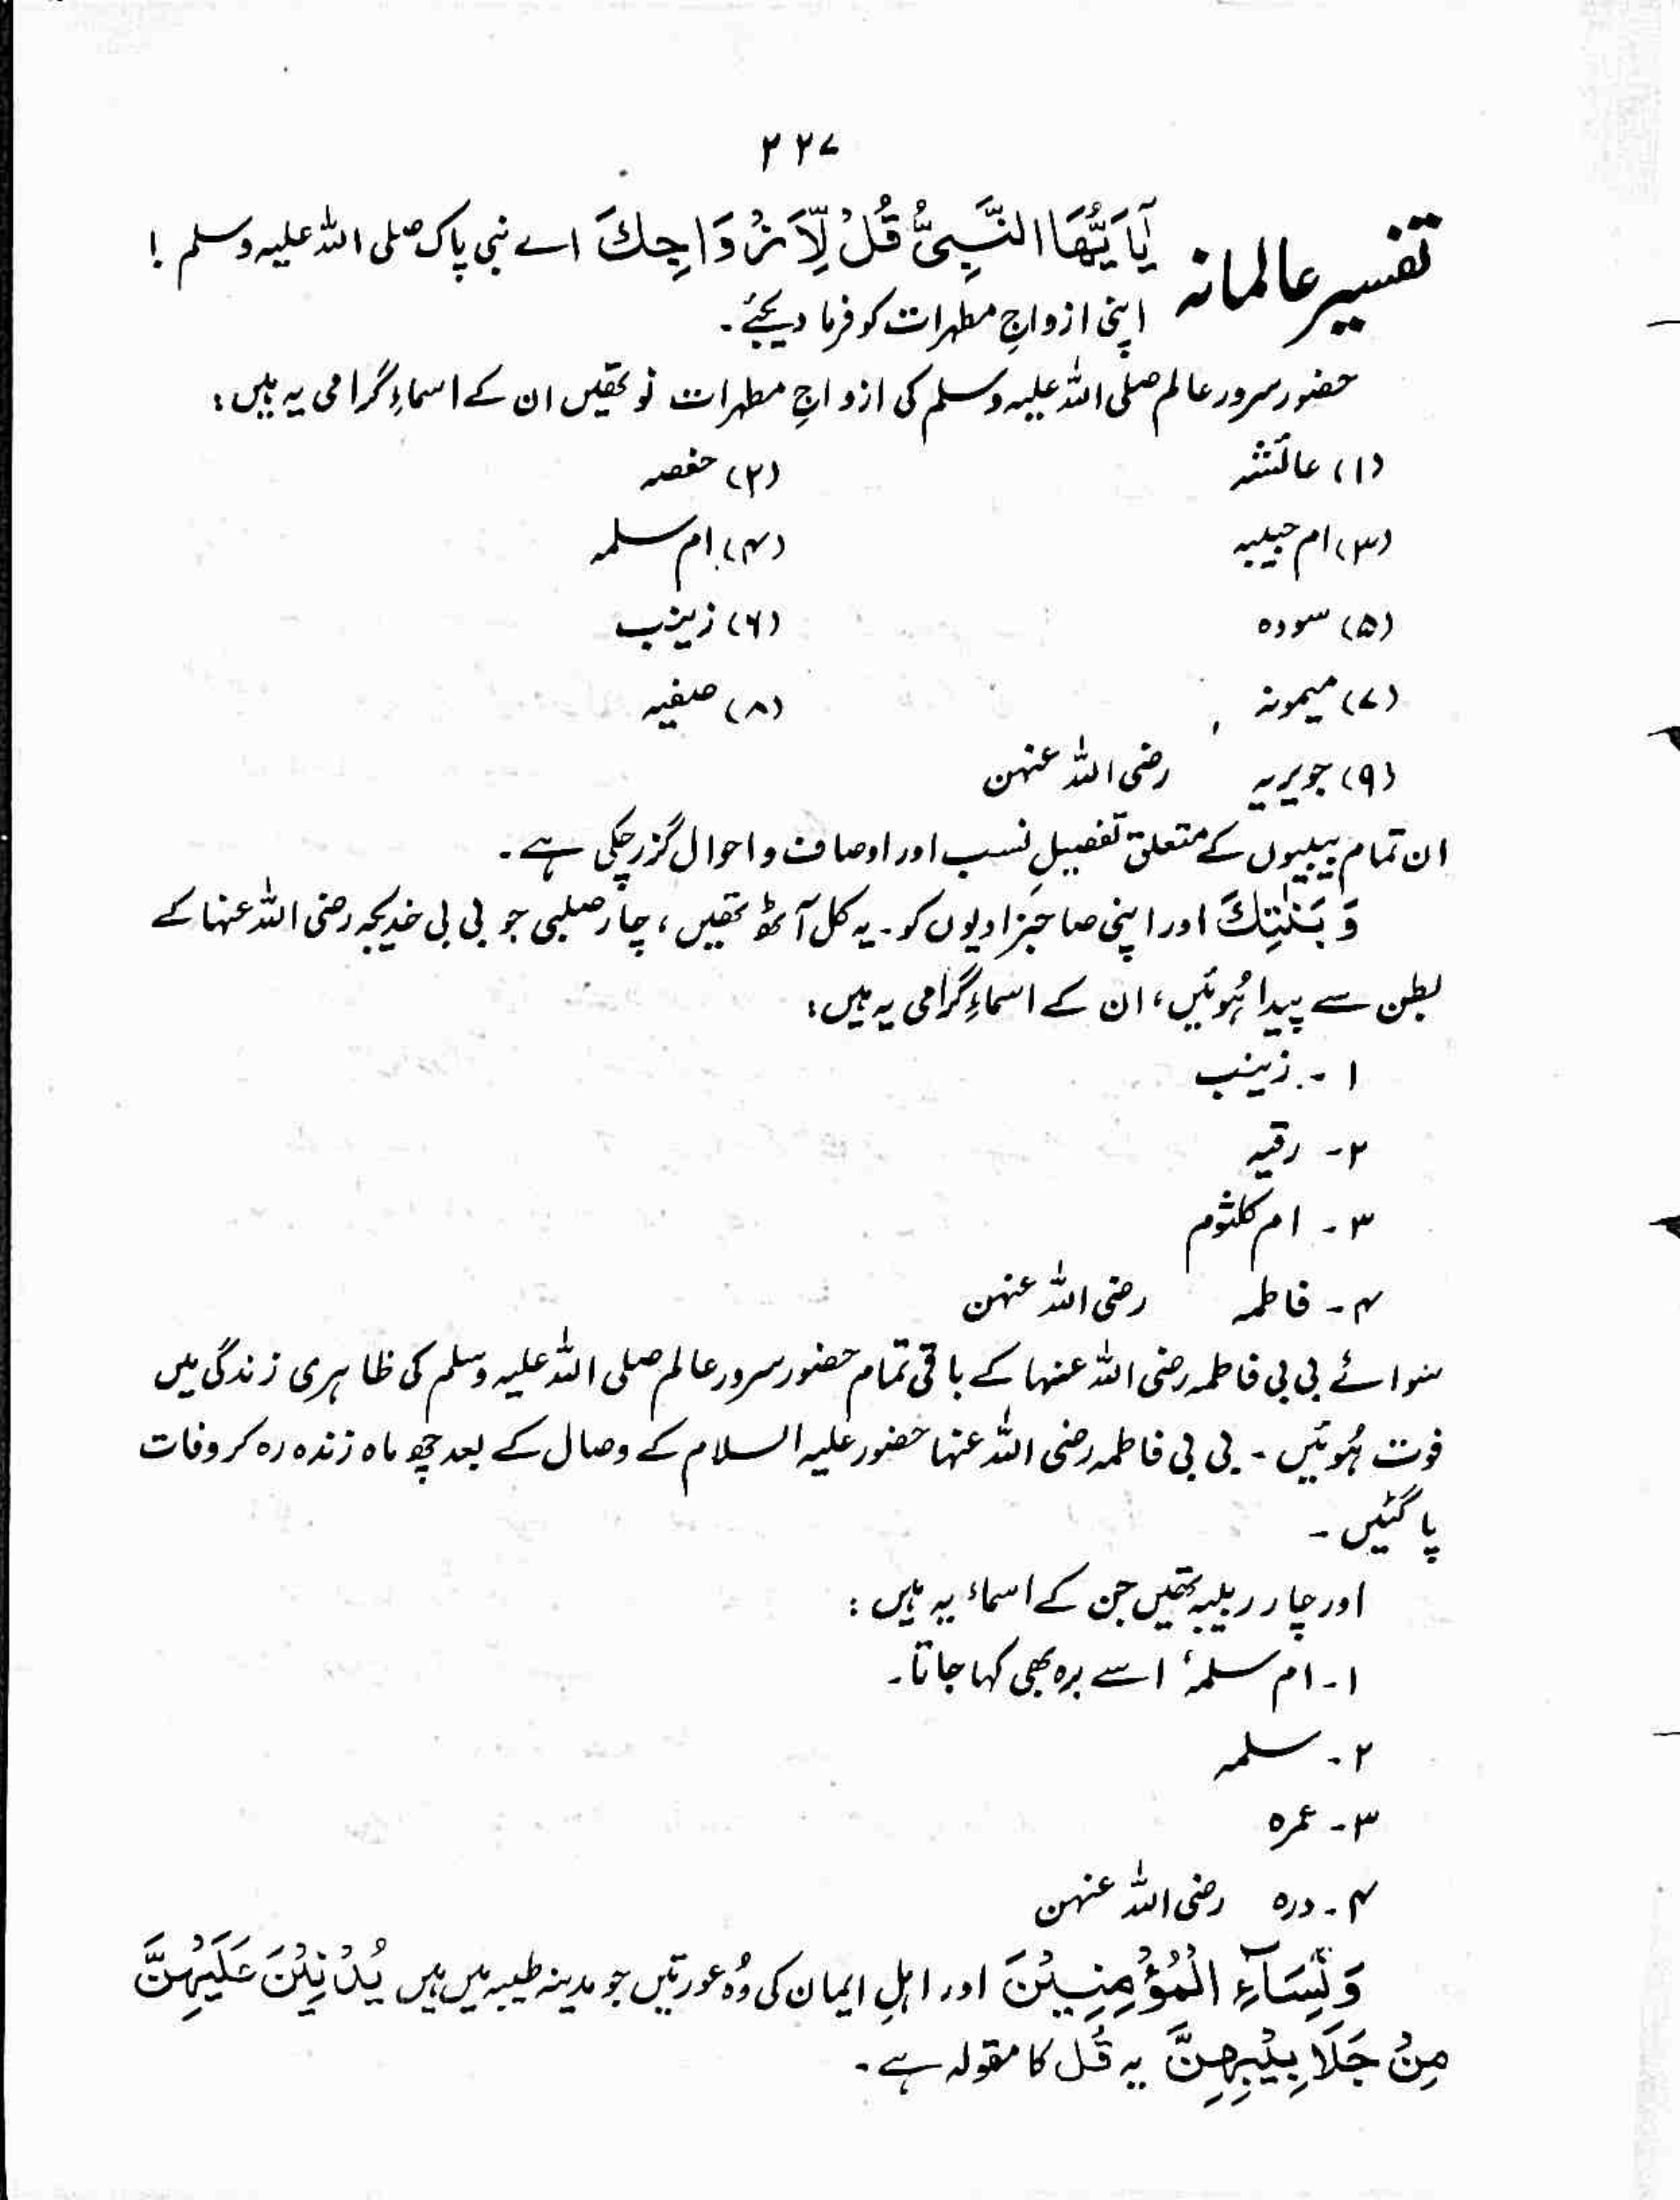 ۲۲۷
تفسیر عالمانہ یٰٓاَیُّھَا النَّبِیُّ قُلْ لِّاَزْوَاجِكَ اے نبی پاک صلی اللہ علیہ وسلم !
اپنی ازواجِ مطہرات کو فرما دیجئے۔
حضور سرور عالم صلی اللہ علیہ وسلم کی ازواجِ مطہرات نو تھیں ان کے اسماءِ گرامی یہ ہیں:
(۱) عائشہ (۲) حفصہ
(۳) ام حبیبہ (۴) ام سلمہ
(۵) سودہ (۶) زینب
(۷) میمونہ (۸) صفیہ
(۹) جویریہ رضی اللہ عنہن
ان تمام بیبیوں کے متعلق تفصیلِ نسب اور اوصاف و احوال گزر چکی ہے۔
وَ بَنٰتِكَ اور اپنی صاحبزادیوں کو۔ یہ کل آٹھ تھیں، چار صلبی جو بی بی خدیجہ رضی اللہ عنہا کے
بطن سے پیدا ہُوئیں، ان کے اسماءِ گرامی یہ ہیں:
۱ ۔ زینب
۲ ۔ رقیہ
۳ ۔ ام کلثوم
۴ ۔ فاطمہ رضی اللہ عنہن
سوائے بی بی فاطمہ رضی اللہ عنہا کے باقی تمام حضور سرور عالم صلی اللہ علیہ وسلم کی ظاہری زندگی میں
فوت ہُوئیں ۔ بی بی فاطمہ رضی اللہ عنہا حضور علیہ السلام کے وصال کے بعد چھ ماہ زندہ رہ کر وفات
پا گئیں ۔
اور چار ربیبہ تھیں جن کے اسماء یہ ہیں :
۱ ۔ ام سلمہ، اسے برہ بھی کہا جاتا۔
۲ ۔ سلمہ
۳ ۔ عمرہ
۴ ۔ درہ رضی اللہ عنہن
وَ نِسَآءِ الْمُؤْمِنِیْنَ اور اہلِ ایمان کی وُہ عورتیں جو مدینہ طیبہ میں ہیں یُدْنِیْنَ عَلَیْہِنَّ
مِنْ جَلَابِیْبِھِنَّ یہ قُل کا مقولہ ہے۔